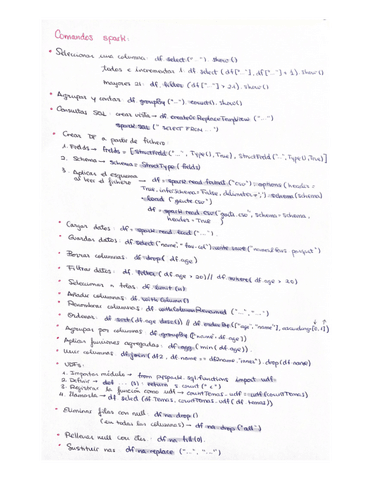 Comandos spark:
• Seleccionar una columna: df select ("...") . show ()
todos e incrementar 1 df select (df["..."], df["..."] + 1) . show ()
mayores 21: df. filter (df["..."] > 21) . show ()
• Agrupar y contar df. groupBy ("...") . count(). show ()
• Consultas SQL crear vista → df createOrReplaceTempView ("...")
spark. SQL (" SELECT FROM ...")
• Crear DF a partir de fichero
1. Fields → fields = [StructField ("...", Type(), True), StructField ("...", Type(), True)]
2. Schema → schema = StructType (fields)
3. Aplicar el esquema al leer el fichero → df = spark. read. format ("csv") . options (header = True, inferSchema = False, delimiter = ";") . schema (schema)
. load (
df = spark. read. csv( schema = schema, header = True )
• Cargar datos: df = spark. read. load ("...") .
• Guardar datos: df select ("name", "
• Borrar columnas df = drop ( df. age)
• Filtrar datos: df. filter ( df. age > 20) // df. where( df age > 20)
• Seleccionar n filas df = limit (n)
• Añadir columnas: df. withColumn()
• Renombrar columnas: df. withColumnRenamed ("...", "...")
• Ordenar: df = sort(df. age. desc()) // df. orderBy (["age", "name"], ascending=[0,1])
• Agrupar por columnas df. groupBy (["name", df. age])
• Aplicar funciones agregadas: df = agg (min (df. age)) .
• Unir columnas df = join( df2 , df. name == df2. name, "inner") . drop (df. name)
• UDFs:
1. Importar módulo → from pyspark. sql. functions import udf
2. Definir → def ... (s) : return s. count (" ")
3. Registrar la función como udf → = udf (
4. Llamarla → df select (df
• Eliminar filas con null: df = na. drop ()
(en todas las columnas) → df = na. drop ("all")
• Rellenar null con ctes: df = na. fill (0).
• Sustituir nas df = na. replace ("...", "...")